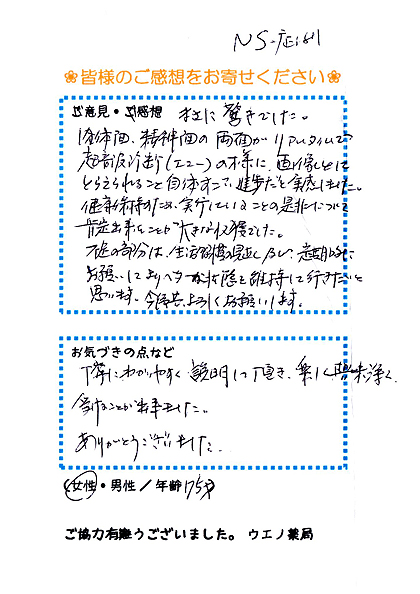 NS-症例1
❀皆様のご感想をお寄せください❀
ご意見・ご感想 本当に驚きでした。
身体面、精神面の両面がリアルタイムで
超音波診断(エコー)の様に、画像として
とらえられること自体すごい進歩だと実感しました。
健康維持のため、実行していることの是非について
肯定出来ることが大きな収穫でした。
不足の部分は、生活習慣の見直し及び、定期的に
お願いしてよりベターな状態を維持して行きたいと
思います。今後共よろしくお願いします。
お気づきの点など
丁寧にわかりやすく説明して頂き、楽しく興味深く、
受けることが出来ました。
ありがとうございました。
女性・男性/年齢 75才
ご協力有難うございました。 ウエノ薬局